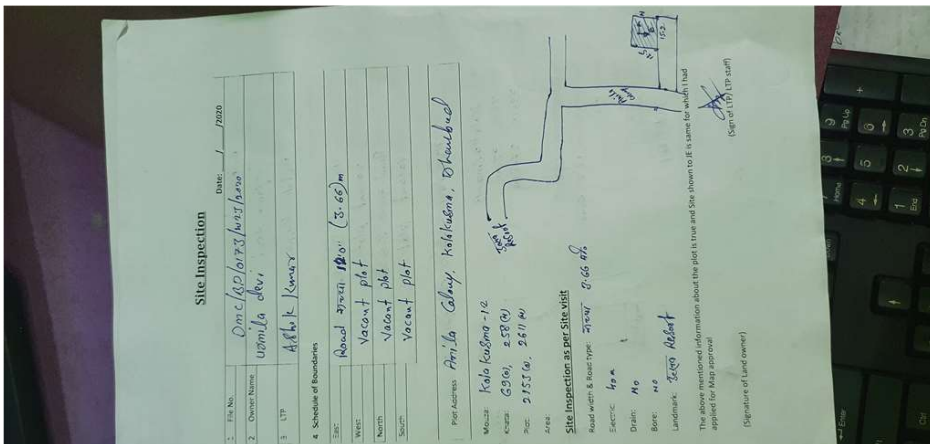 Site Inspection
Date: / /2020
1 File No. DMC/BP/0173/W23/2020
2 Owner Name Urmila devi
3 LTP Ashok Kumar
4 Schedule of Boundaries
East: Road रास्ता 12'0" (3.66)m
West: Vacant plot
North Vacant plot
South Vacant plot
Plot Address Anila Colony, Kolakusma, Dhanbad
Mouza: Kolakusma-12
Khata: 69(O), 258(N)
Plot: 2153(O), 2611(N)
Area:
Site Inspection as per Site visit
Road width & Road type: रास्ता 3.66 मी०
Electric:
Drain: NO
Bore: NO
Landmark: Resort
The above mentioned information about the plot is true and Site shown to JE is same for which I had
applied for Map approval
(Signature of Land owner)
(Sign of LTP/ LTP staff)
Resort
15.2
N
Enter
+
9
Pg Up
6
3
Pg Dn
8
5
2
Home
4
1
End
Ctrl